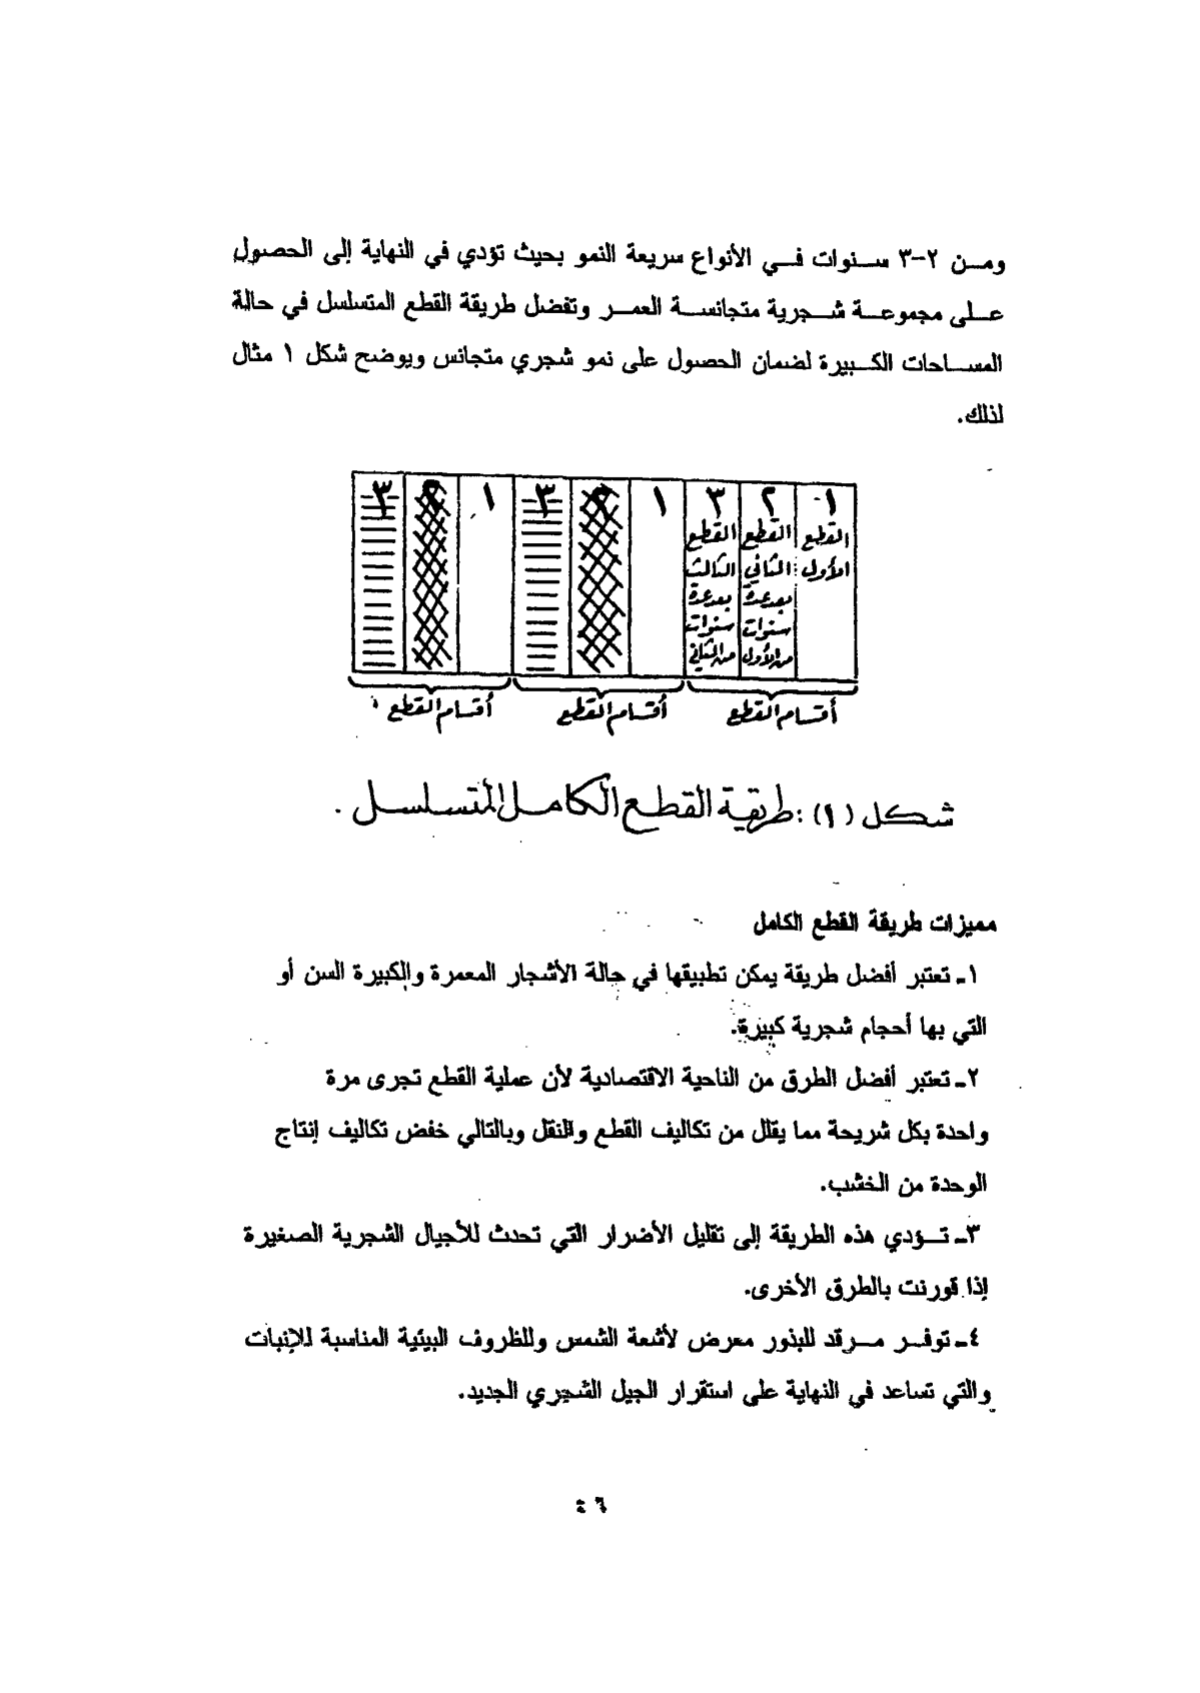 ومن ٢-٣ سنوات في الأنواع سريعة النمو بحيث تؤدي في النهاية إلى الحصول
على مجموعة شجرية متجانسة العمر وتفضل طريقة القطع المتسلسل في حالة
المساحات الكبيرة لضمان الحصول على نمو شجري متجانس ويوضح شكل ١ مثال
لذلك.
١ ٢ ٣ ١ ٢ ٣ ١ ٢ ٣
القطع القطع القطع
الأول الثاني الثالث
بعد عدة بعد عدة
سنوات سنوات
من الأول من الثاني
أقسام القطع أقسام القطع أقسام القطع
شكل (١): طريقة القطع الكامل المتسلسل.
مميزات طريقة القطع الكامل
١ـ تعتبر أفضل طريقة يمكن تطبيقها في حالة الأشجار المعمرة والكبيرة السن أو
التي بها أحجام شجرية كبيرة.
٢ـ تعتبر أفضل الطرق من الناحية الاقتصادية لأن عملية القطع تجرى مرة
واحدة بكل شريحة مما يقلل من تكاليف القطع والنقل وبالتالي خفض تكاليف إنتاج
الوحدة من الخشب.
٣ـ تؤدي هذه الطريقة إلى تقليل الأضرار التي تحدث للأجيال الشجرية الصغيرة
إذا قورنت بالطرق الأخرى.
٤ـ توفر مرقد للبذور معرض لأشعة الشمس وللظروف البيئية المناسبة للإنبات
والتي تساعد في النهاية على استقرار الجيل الشجري الجديد.
٤٦